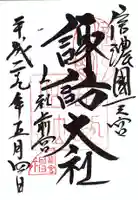 信濃國一之宮
諏訪大社
上社前宮
平成二九年五月四日